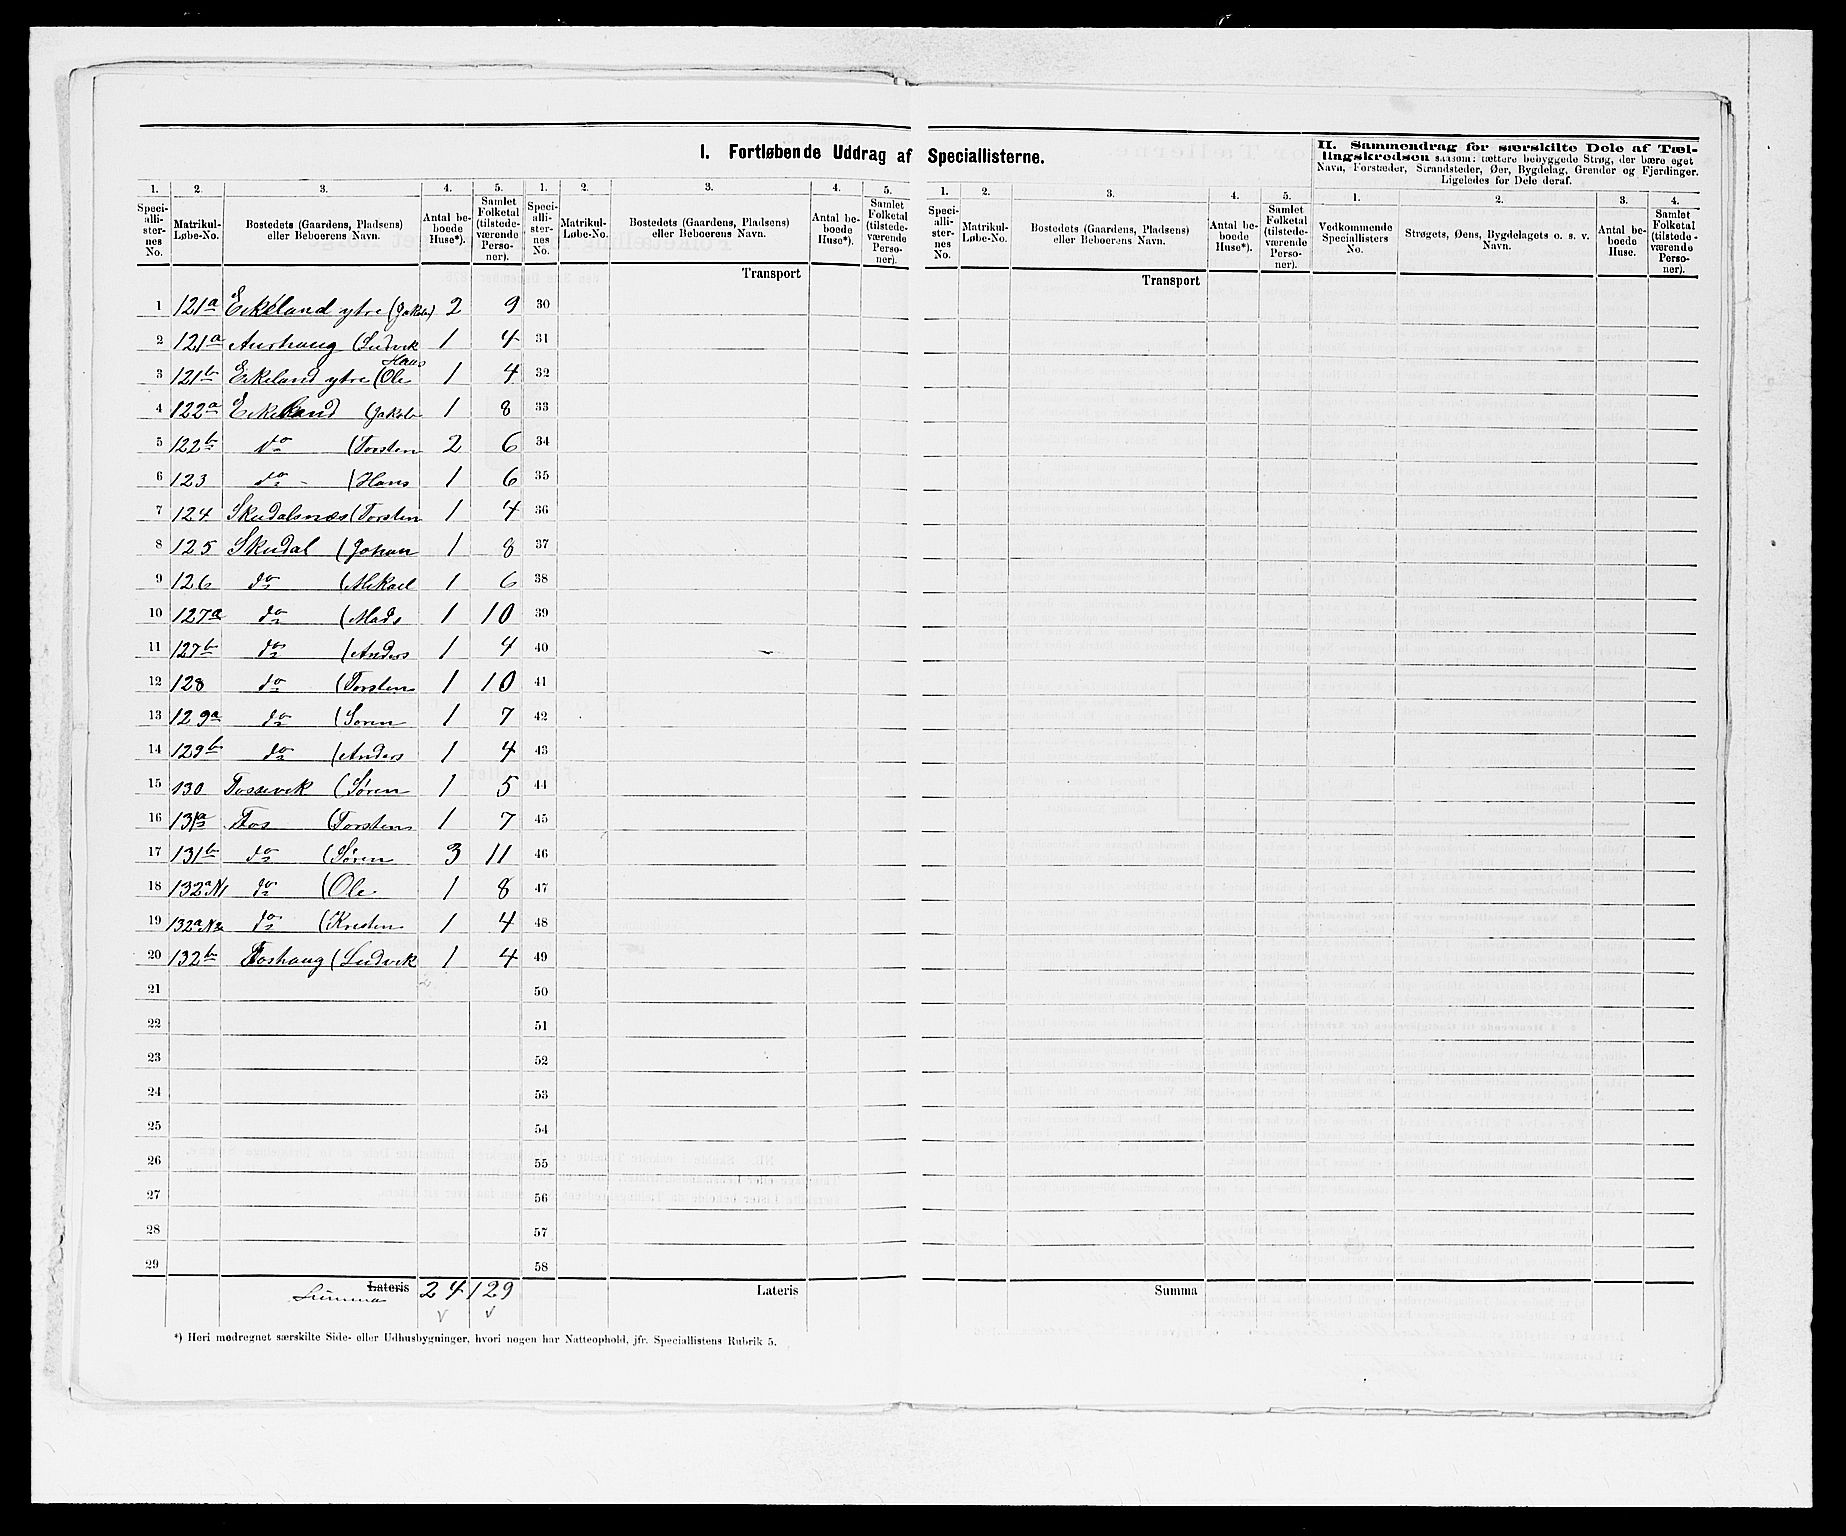 I. Fortløbende Uddrag af Speciallisterne.
II. Sammendrag for særskilte Dele af Tællingskredsen saasom: tættere bebyggede Strøg, der bære eget Navn, Forstæder, Strandsteder, Øer, Bygdelag, Grender og Fjerdinger. Ligeledes for Dele deraf.
1. 2. 3. 4. 5. 1. 2. 3. 4. 5. 1. 2. 3. 4. 5. 1. 2. 3. 4.
Speciallisternes No. Matrikul-Løbe-No. Bostedets (Gaardens, Pladsens) eller Beboerens Navn. Antal beboede Huse*). Samlet Folketal (tilstedeværende Personer).
Speciallisternes No. Matrikul-Løbe-No. Bostedets (Gaardens, Pladsens) eller Beboerens Navn. Antal beboede Huse*). Samlet Folketal (tilstedeværende Personer).
Speciallisternes No. Matrikul-Løbe-No. Bostedets (Gaardens, Pladsens) eller Beboerens Navn. Antal beboede Huse*). Samlet Folketal (tilstedeværende Personer).
Vedkommende Speciallisters No. Strøgets, Øens, Bygdelagets o. s. v. Navn. Antal beboede Huse. Samlet Folketal (tilstedeværende Personer).
Transport Transport
1 121a Eikeland ytre (Jakob) 2 9 30
2 121a Aurhaug (Ludvik 1 4 31
3 121b Eikeland ytre (Ole Hans 1 4 32
4 122a Eikeland (Jakob 1 8 33
5 122b do (Torsten 2 6 34
6 123 do - (Hans 1 6 35
7 124 Skudalsnæs (Torsten 1 4 36
8 125 Skudal (Johan 1 8 37
9 126 do (Mikael 1 6 38
10 127a do (Mads 1 10 39
11 127b do (Anders 1 4 40
12 128 do (Torsten 1 10 41
13 129a do (Søren 1 7 42
14 129b do (Anders 1 4 43
15 130 Fossevik (Søren 1 5 44
16 131a Fos (Torsten 1 7 45
17 131b do (Søren 3 11 46
18 132a N1 do (Ole 1 8 47
19 132a N2 do (Kristen 1 4 48
20 132b Foshaug (Ludvik 1 4 49
21 50
22 51
23 52
24 53
25 54
26 55
27 56
28 57
29 58
Lateris Summa 24 129 Lateris Summa
*) Heri medregnet særskilte Side- eller Udhusbygninger, hvori nogen har Natteophold, jfr. Speciallistens Rubrik 5.